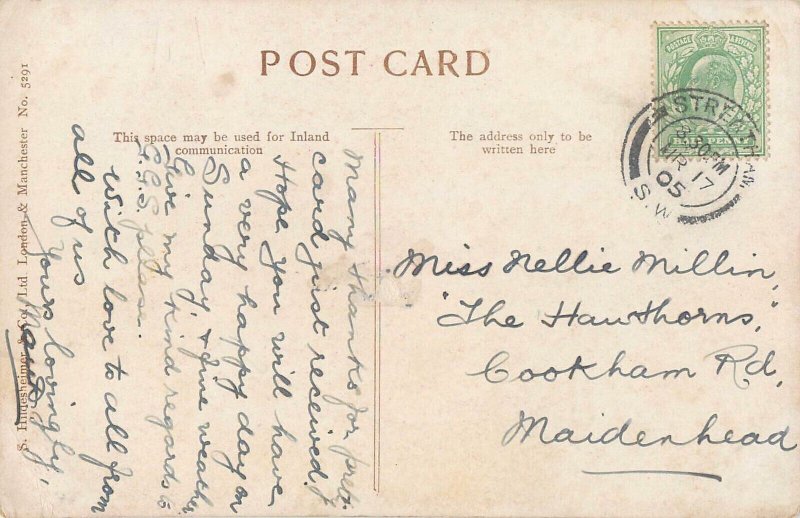 POST CARD
This space may be used for Inland
communication
The address only to be
written here
S. Hildesheimer & Co., Ltd London & Manchester No. 5291
POSTAGE & REVENUE
STREATHAM
3.30PM
MR 17
05
S.W.
Many thanks for pret.
card just received.
Hope you will have
a very happy day on
Sunday, & fine weather
Give my kind regards to
G.G.S. please.
With love to all from
all of us
Yours lovingly,
Maud
Miss Nellie Millin,
"The Hawthorns,"
Cookham Rd,
Maidenhead